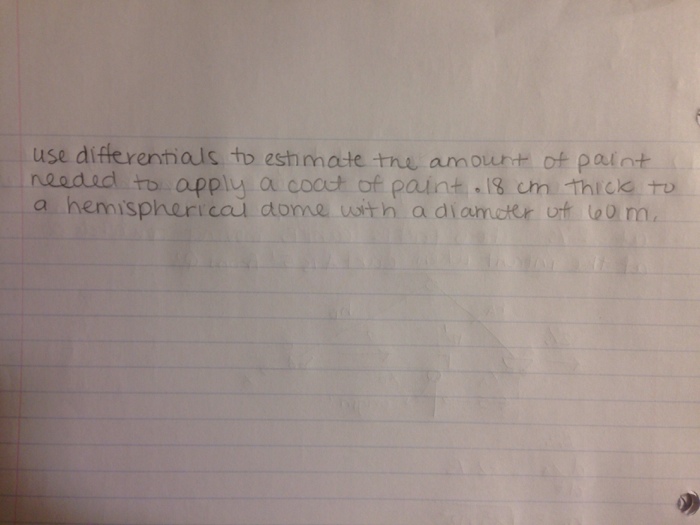 use differentials to estimate the amount of paint
needed to apply a coat of paint .18 cm thick to
a hemispherical dome with a diameter of 60 m.